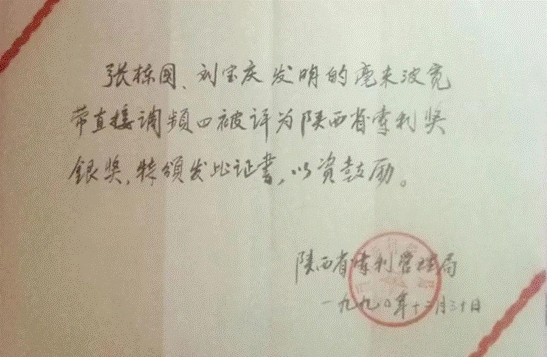 张栋国、刘宝庆发明的毫米波宽
带直接调频四被评为陕西省专利奖
银奖,特颁发此证书,以资鼓励。
陕西省专利管理局
一九九〇年十二月三十日